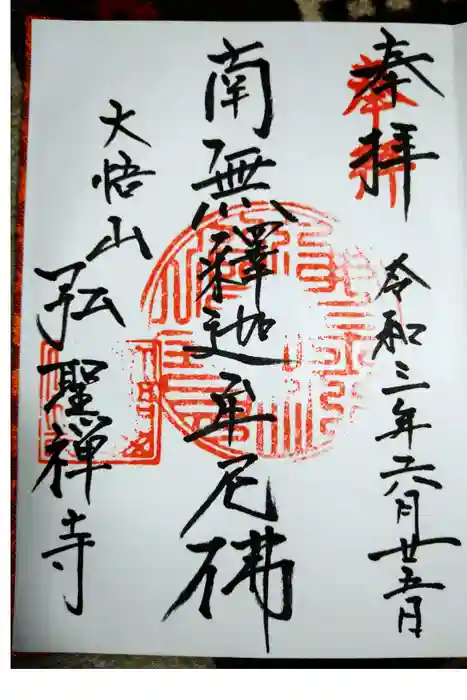 奉拝
令和三年六月廿五日
南無釋迦牟尼佛
大悟山
弘聖禅寺